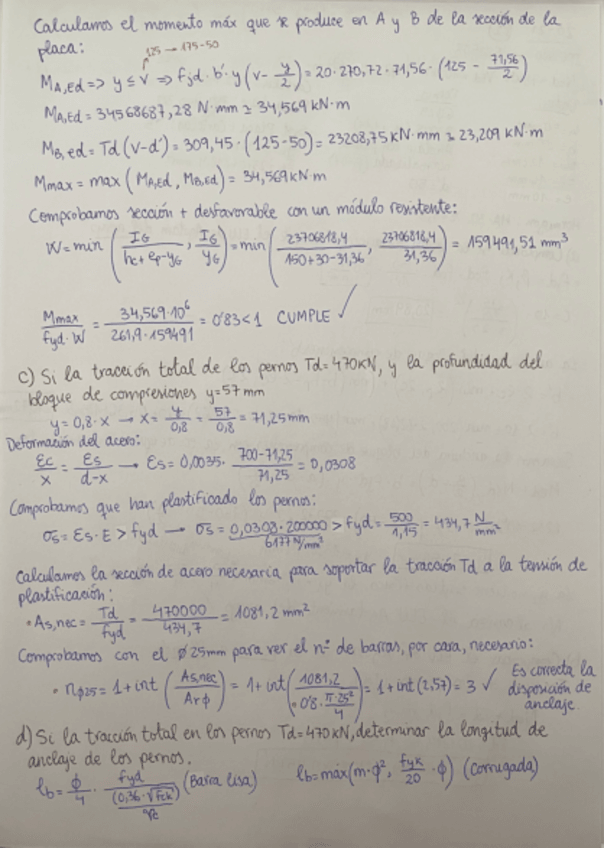 Calculamos el momento máx que se produce en A y B de la sección de la
placa:
125 → 175-50
M_A,Ed => y ≤ v => fjd · b' · y (v - y/2) = 20 · 270,72 · 71,56 · (125 - 71,56/2)
M_A,Ed = 34568687,28 N·mm ≃ 34,569 kN·m
M_B,ed = Td (v-d') = 309,45 · (125-50) = 23208,75 kN·mm ≃ 23,209 kN·m
Mmax = max (M_A,Ed, M_B,Ed) = 34,569 kN·m
Comprobamos sección + desfavorable con un módulo resistente:
W = min (I_G/(hc+ep-y_G), I_G/y_G) = min (23706818,4/(150+30-31,36), 23706818,4/31,36) = 159491,51 mm³
Mmax/(fyd·W) = 34,569·10⁶/(261,9·159491) = 0'83 < 1 CUMPLE ✓
c) Si la tracción total de los pernos Td = 470 kN, y la profundidad del
bloque de compresiones y = 57 mm
y = 0,8·x → x = y/0,8 = 57/0,8 = 71,25 mm
Deformación del acero:
Ec/x = Es/(d-x) → Es = 0,0035 · (700-71,25)/71,25 = 0,0308
Comprobamos que han plastificado los pernos:
σs = Es·E > fyd → σs = 0,0308·200000 > fyd = 500/1,15 = 434,7 N/mm²
6177 N/mm²
Calculamos la sección de acero necesaria para soportar la tracción Td a la tensión de
plastificación:
• As,nec = Td/fyd = 470000/434,7 = 1081,2 mm²
Comprobamos con el ø 25mm para ver el nº de barras, por cara, necesario:
• nø25 = 1+int (As,nec/Arϕ) = 1+int (1081,2/(0'8·π·25²/4)) = 1+int (2,57) = 3 ✓ Es correcta la
disposición de
anclaje.
d) Si la tracción total en los pernos Td = 470 kN, determinar la longitud de
anclaje de los pernos.
lb = ϕ/4 · fyd/((0,36·√fck)/γc) (Barra lisa) lb = máx (m·ϕ², fyk/20 · ϕ) (Corrugada)